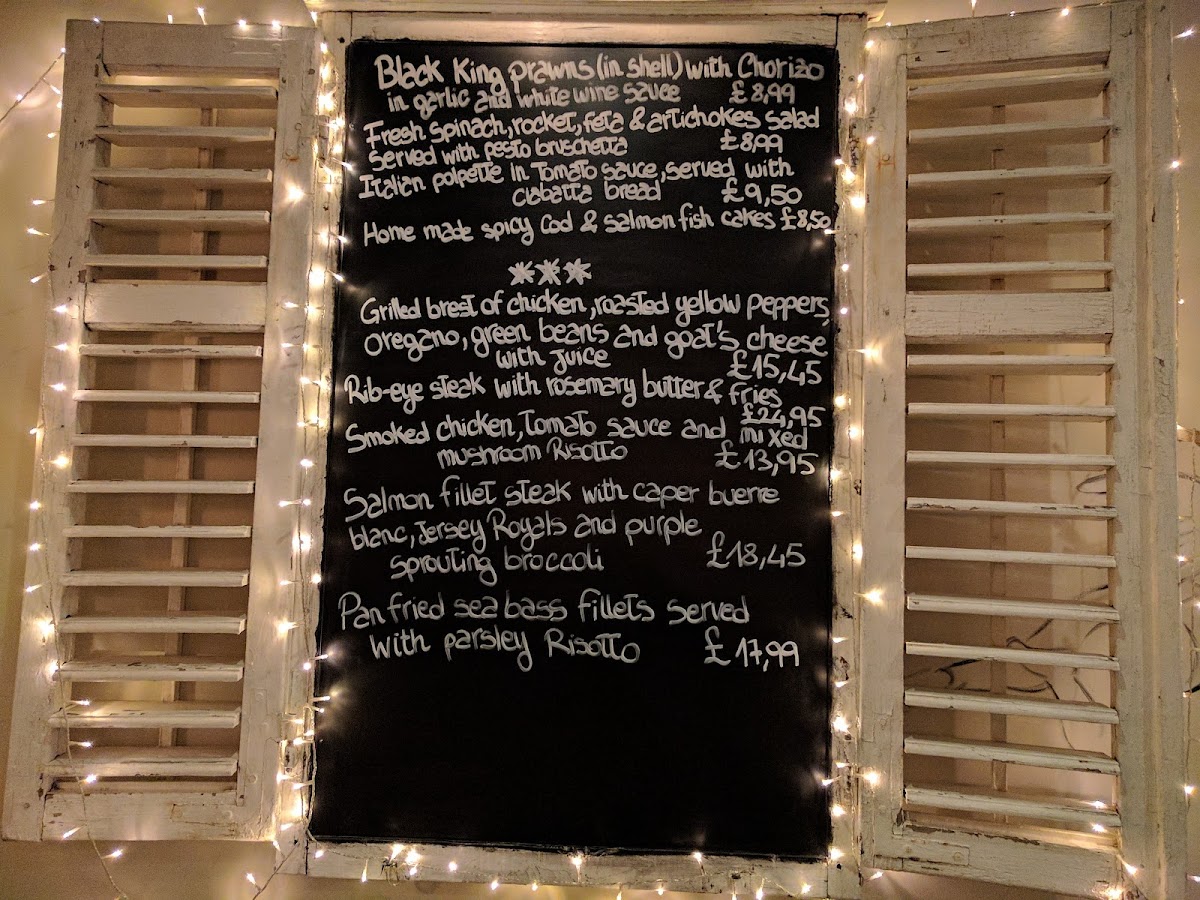 Black King Prawns (in shell) with Chorizo
in garlic and white wine sauce £8,99
Fresh spinach, rocket, feta & artichokes salad
Served with pesto bruschetta £8,99
Italian polpette in Tomato sauce, served with
ciabatta bread £9,50
Home made spicy Cod & salmon fish cakes £8,50
***
Grilled brest of chicken, roasted yellow peppers,
oregano, green beans and goat's cheese
with Juice £15,45
Rib-eye steak with rosemary butter & fries
£24,95
Smoked chicken, tomato sauce and mixed
mushroom Risotto £13,95
Salmon fillet steak with caper buerre
blanc, Jersey Royals and purple
sprouting broccoli £18,45
Pan fried sea bass fillets served
with parsley Risotto £17,99